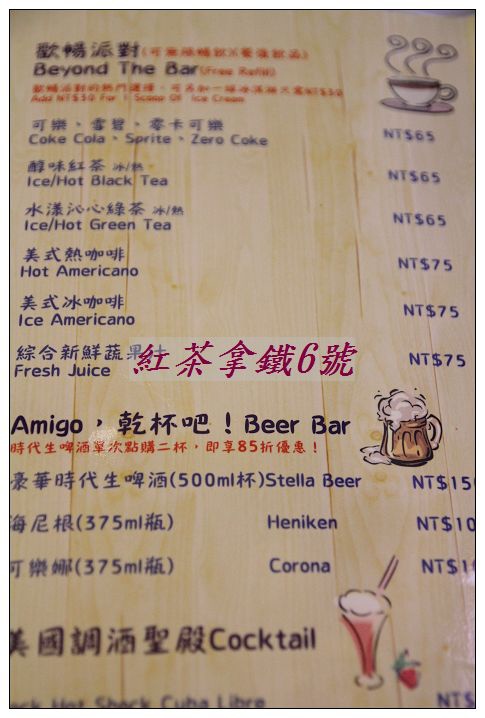 歡暢派對(可無限暢飲以餐後飲品)
Beyond The Bar(Free Refill)
Add NT$30 For 1 Scoop Of Ice Cream
可樂、雪碧、零卡可樂
Coke Cola、Sprite、Zero Coke NT$65
醇味紅茶 冰/熱
Ice/Hot Black Tea NT$65
水漾沁心綠茶 冰/熱
Ice/Hot Green Tea NT$65
美式熱咖啡
Hot Americano NT$75
美式冰咖啡
Ice Americano NT$75
綜合新鮮蔬果汁
Fresh Juice NT$75
紅茶拿鐵6號
Amigo，乾杯吧！Beer Bar
時代生啤酒單次點購二杯，即享85折優惠！
豪華時代生啤酒(500ml杯)Stella Beer NT$15
海尼根(375ml瓶) Heniken NT$10
可樂娜(375ml瓶) Corona NT$1
美國調酒聖殿Cocktail
Hot Shock Cuba Libre NT$